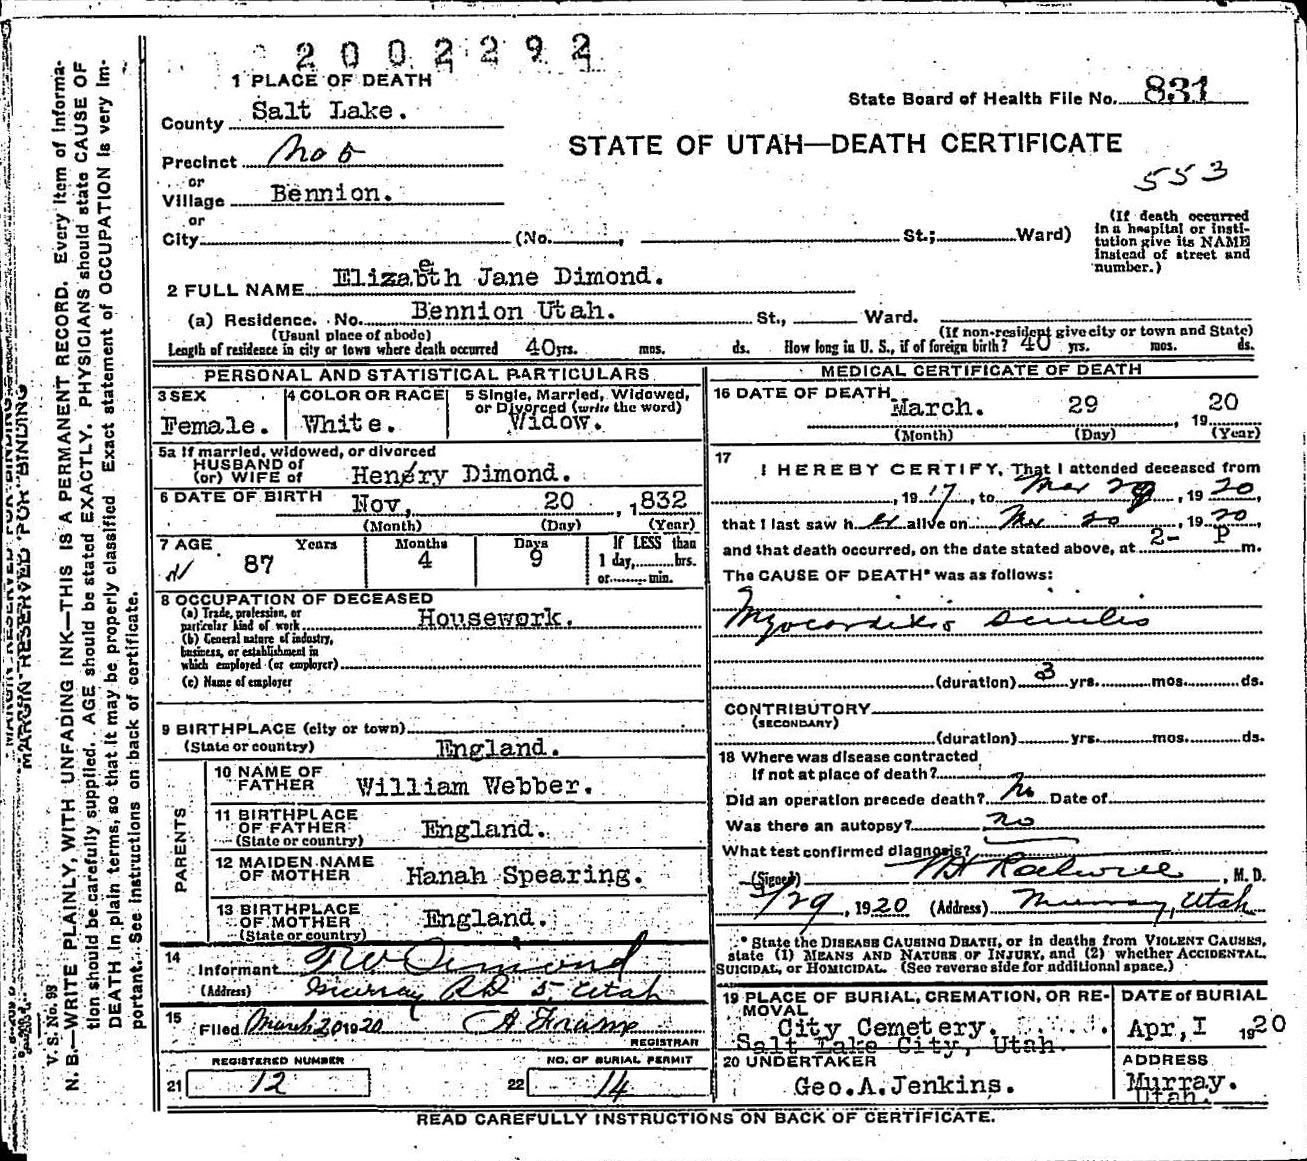 2002292
1 PLACE OF DEATH
County Salt Lake.
State Board of Health File No. 831
Precinct No 5
STATE OF UTAH—DEATH CERTIFICATE
553
or
Village Bennion.
or
City (No. , St.; Ward)
(If death occurred in a hospital or institution give its NAME instead of street and number.)
2 FULL NAME Elizabeth Jane Dimond.
(a) Residence. No. Bennion Utah. St., Ward.
(Usual place of abode) (If non-resident give city or town and State)
Length of residence in city or town where death occurred 40 yrs. mos. ds. How long in U. S., if of foreign birth? 40 yrs. mos. ds.
PERSONAL AND STATISTICAL PARTICULARS
3 SEX
Female.
4 COLOR OR RACE
White.
5 Single, Married, Widowed,
or Divorced (write the word)
Widow.
5a If married, widowed, or divorced
HUSBAND of
(or) WIFE of Henery Dimond.
6 DATE OF BIRTH Nov, 20, 1832
(Month) (Day) (Year)
7 AGE Years Months Days If LESS than
87 4 9 1 day, hrs.
or min.
8 OCCUPATION OF DECEASED
(a) Trade, profession, or
particular kind of work Housework.
(b) General nature of industry,
business, or establishment in
which employed (or employer)
(c) Name of employer
9 BIRTHPLACE (city or town)
(State or country) England.
PARENTS
10 NAME OF
FATHER William Webber.
11 BIRTHPLACE
OF FATHER
(State or country) England.
12 MAIDEN NAME
OF MOTHER Hanah Spearing.
13 BIRTHPLACE
OF MOTHER
(State or country) England.
14
Informant Dimond
(Address) Murray RD 5, Utah
15
Filed March 30 1920
REGISTRAR
REGISTERED NUMBER NO. OF BURIAL PERMIT
21 12 22 14
MEDICAL CERTIFICATE OF DEATH
16 DATE OF DEATH March. 29, 1920
(Month) (Day) (Year)
17
I HEREBY CERTIFY, That I attended deceased from
, 1917, to Mar 29, 1920,
that I last saw her alive on Mar 20, 1920,
and that death occurred, on the date stated above, at 2- P m.
The CAUSE OF DEATH* was as follows:
Myocarditis Senilis
(duration) 3 yrs. mos. ds.
CONTRIBUTORY
(SECONDARY)
(duration) yrs. mos. ds.
18 Where was disease contracted
If not at place of death?
Did an operation precede death? No Date of
Was there an autopsy? No
What test confirmed diagnosis?
(Signed) , M. D.
3/29, 1920 (Address) Murray, Utah
* State the DISEASE CAUSING DEATH, or in deaths from VIOLENT CAUSES,
state (1) MEANS AND NATURE OF INJURY, and (2) whether ACCIDENTAL,
SUICIDAL, or HOMICIDAL. (See reverse side for additional space.)
19 PLACE OF BURIAL, CREMATION, OR REMOVAL
City Cemetery.
Salt Lake City, Utah.
DATE of BURIAL
Apr, I 1920
20 UNDERTAKER
Geo.A.Jenkins.
ADDRESS
Murray.
Utah.
READ CAREFULLY INSTRUCTIONS ON BACK OF CERTIFICATE.
MARGIN RESERVED FOR BINDING
V. S. No. 98
N. B.—WRITE PLAINLY, WITH UNFADING INK—THIS IS A PERMANENT RECORD. Every item of informa-
tion should be carefully supplied. AGE should be stated EXACTLY. PHYSICIANS should state CAUSE OF
DEATH in plain terms, so that it may be properly classified. Exact statement of OCCUPATION is very im-
portant. See instructions on back of certificate.